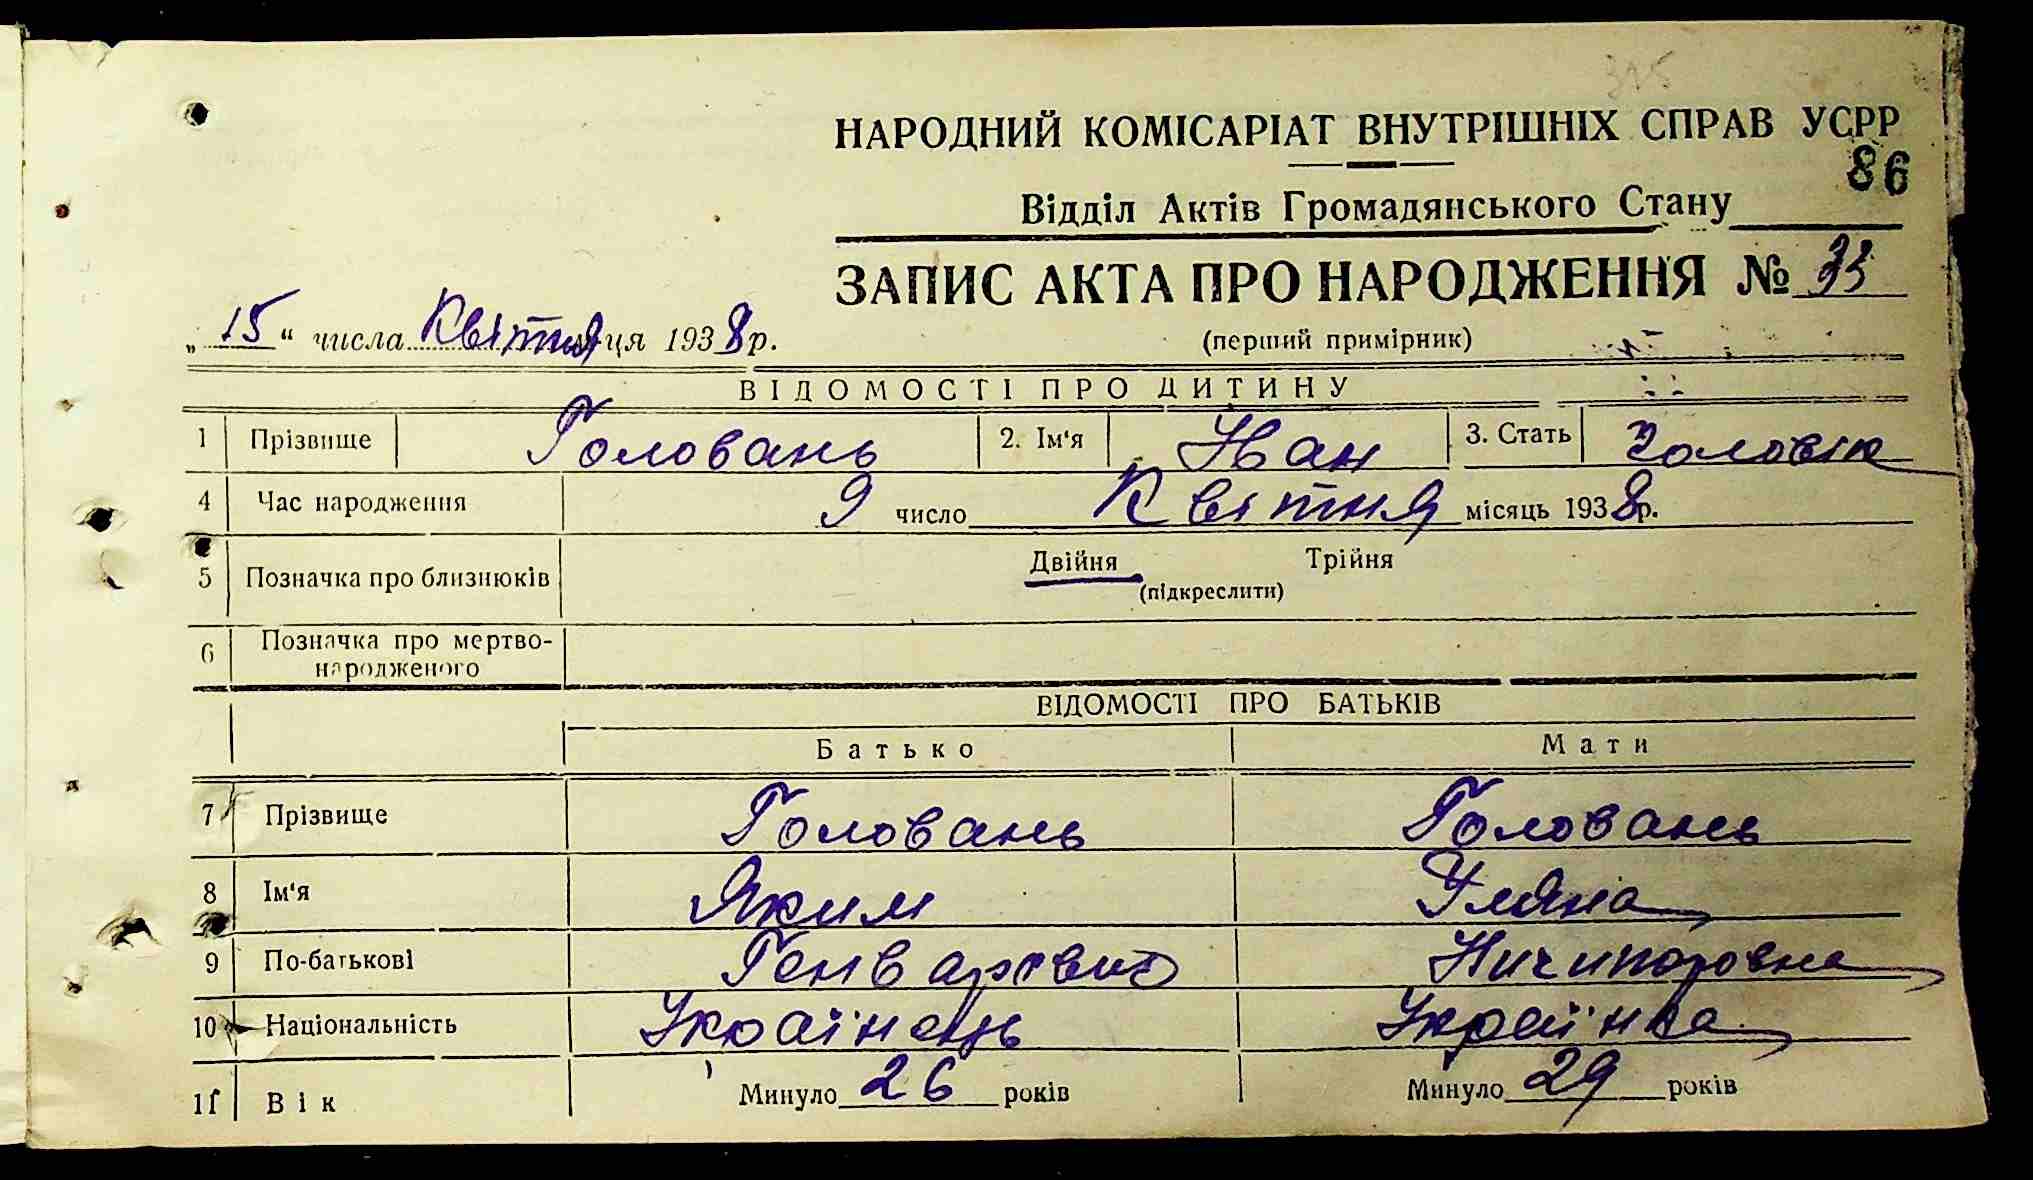 315
НАРОДНИЙ КОМІСАРІАТ ВНУТРІШНІХ СПРАВ УСРР
86
Відділ Актів Громадянського Стану
ЗАПИС АКТА ПРО НАРОДЖЕННЯ № 33
„15“ числа Квітня ця 1938 р.
(перший примірник)
ВІДОМОСТІ ПРО ДИТИНУ
1 Прізвище Головань 2. Ім'я Іван 3. Стать Чоловік
4 Час народження 9 число Квітня місяць 1938 р.
5 Позначка про близнюків Двійня Трійня
(підкреслити)
6 Позначка про мертво-
народженого
ВІДОМОСТІ ПРО БАТЬКІВ
Батько Мати
7 Прізвище Головань Головань
8 Ім'я Яким Уляна
9 По-батькові Ничипоровна
10 Національність Українець Українка
11 Вік Минуло 26 років Минуло 29 років